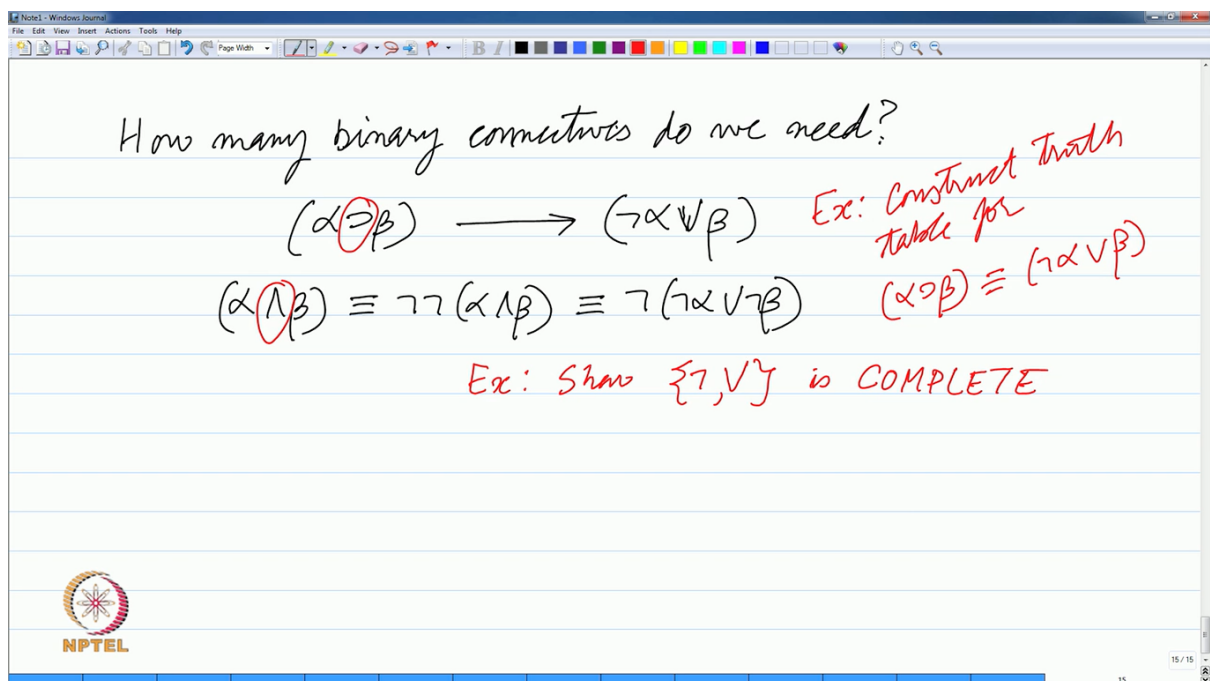 Note1 - Windows Journal
File Edit View Insert Actions Tools Help
Page Width
B I
How many binary connectives do we need?
(α⊃β) ⟶ (¬α∨β)
Ex: Construct truth
table for
(α⊃β) ≡ (¬α∨β)
(α∧β) ≡ ¬¬(α∧β) ≡ ¬(¬α∨¬β)
Ex: Show {¬,∨} is COMPLETE
NPTEL
15 / 15
15